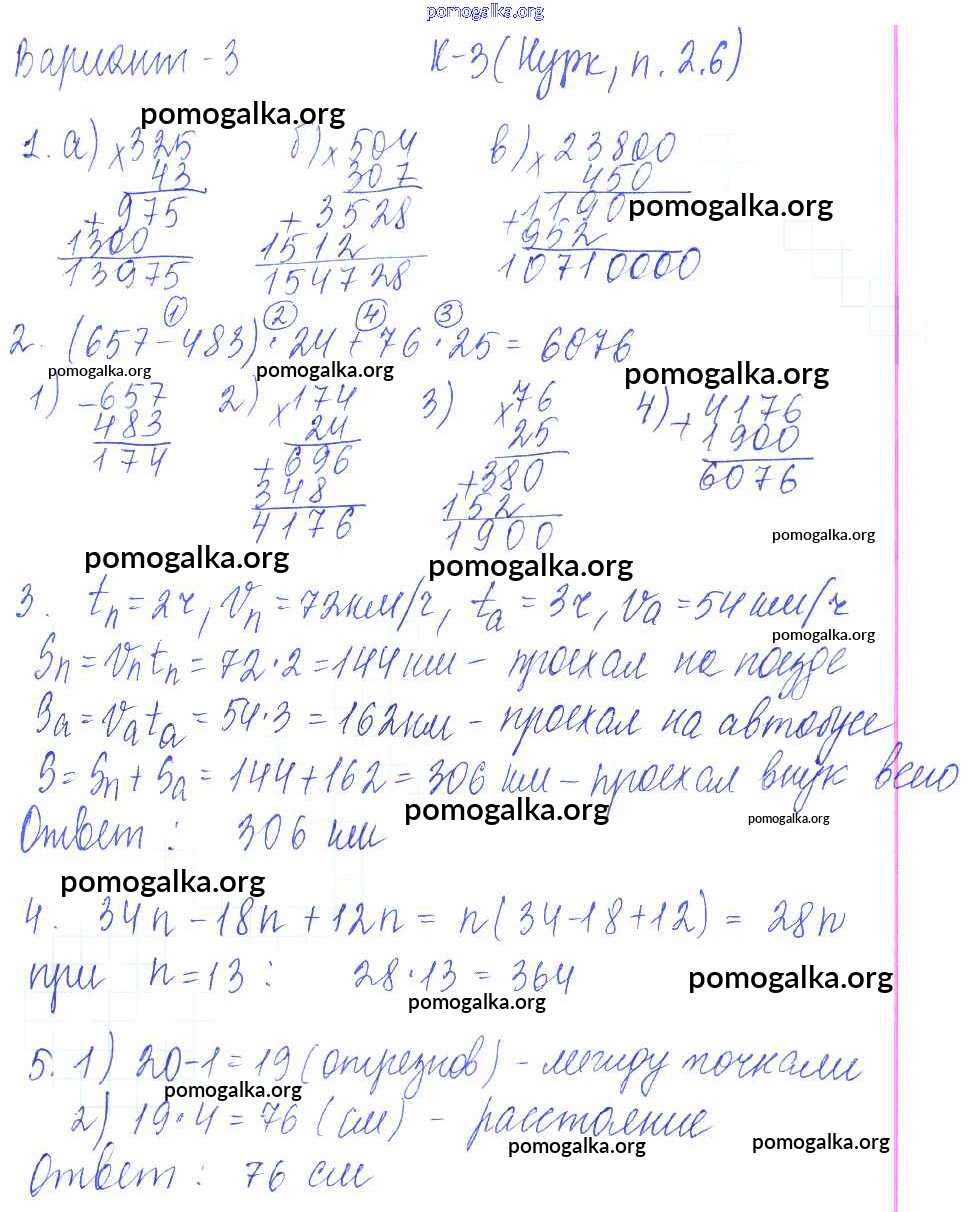 pomogalka.org
Вариант - 3 К-3 (Нурк, п. 2.6)
pomogalka.org
1. а) × 325 б) × 504 в) × 23800
43 307 450
+ 975 + 3528 + 1190 pomogalka.org
1300 1512 952
13975 154728 10710000
① ② ④ ③
2. (657 - 483) · 24 + 76 · 25 = 6076
pomogalka.org pomogalka.org pomogalka.org
1) - 657 2) × 174 3) × 76 4) + 4176
483 24 25 1900
174 + 696 + 380 6076
348 152
4176 1900
pomogalka.org
pomogalka.org pomogalka.org
3. tп = 2ч, Vп = 72км/ч, tа = 3ч, Vа = 54км/ч
pomogalka.org
Sп = Vп tп = 72 · 2 = 144 км - проехал на поезде
Sа = Vа tа = 54 · 3 = 162км - проехал на автобусе
S = Sп + Sа = 144 + 162 = 306 км - проехал внук всего
pomogalka.org pomogalka.org
Ответ : 306 км
pomogalka.org
4. 34n - 18n + 12n = n(34 - 18 + 12) = 28n
при n = 13 : 28 · 13 = 364 pomogalka.org
pomogalka.org
5. 1) 20 - 1 = 19 (отрезков) - между точками
pomogalka.org
2) 19 · 4 = 76 (см) - расстояние
pomogalka.org pomogalka.org
Ответ : 76 см